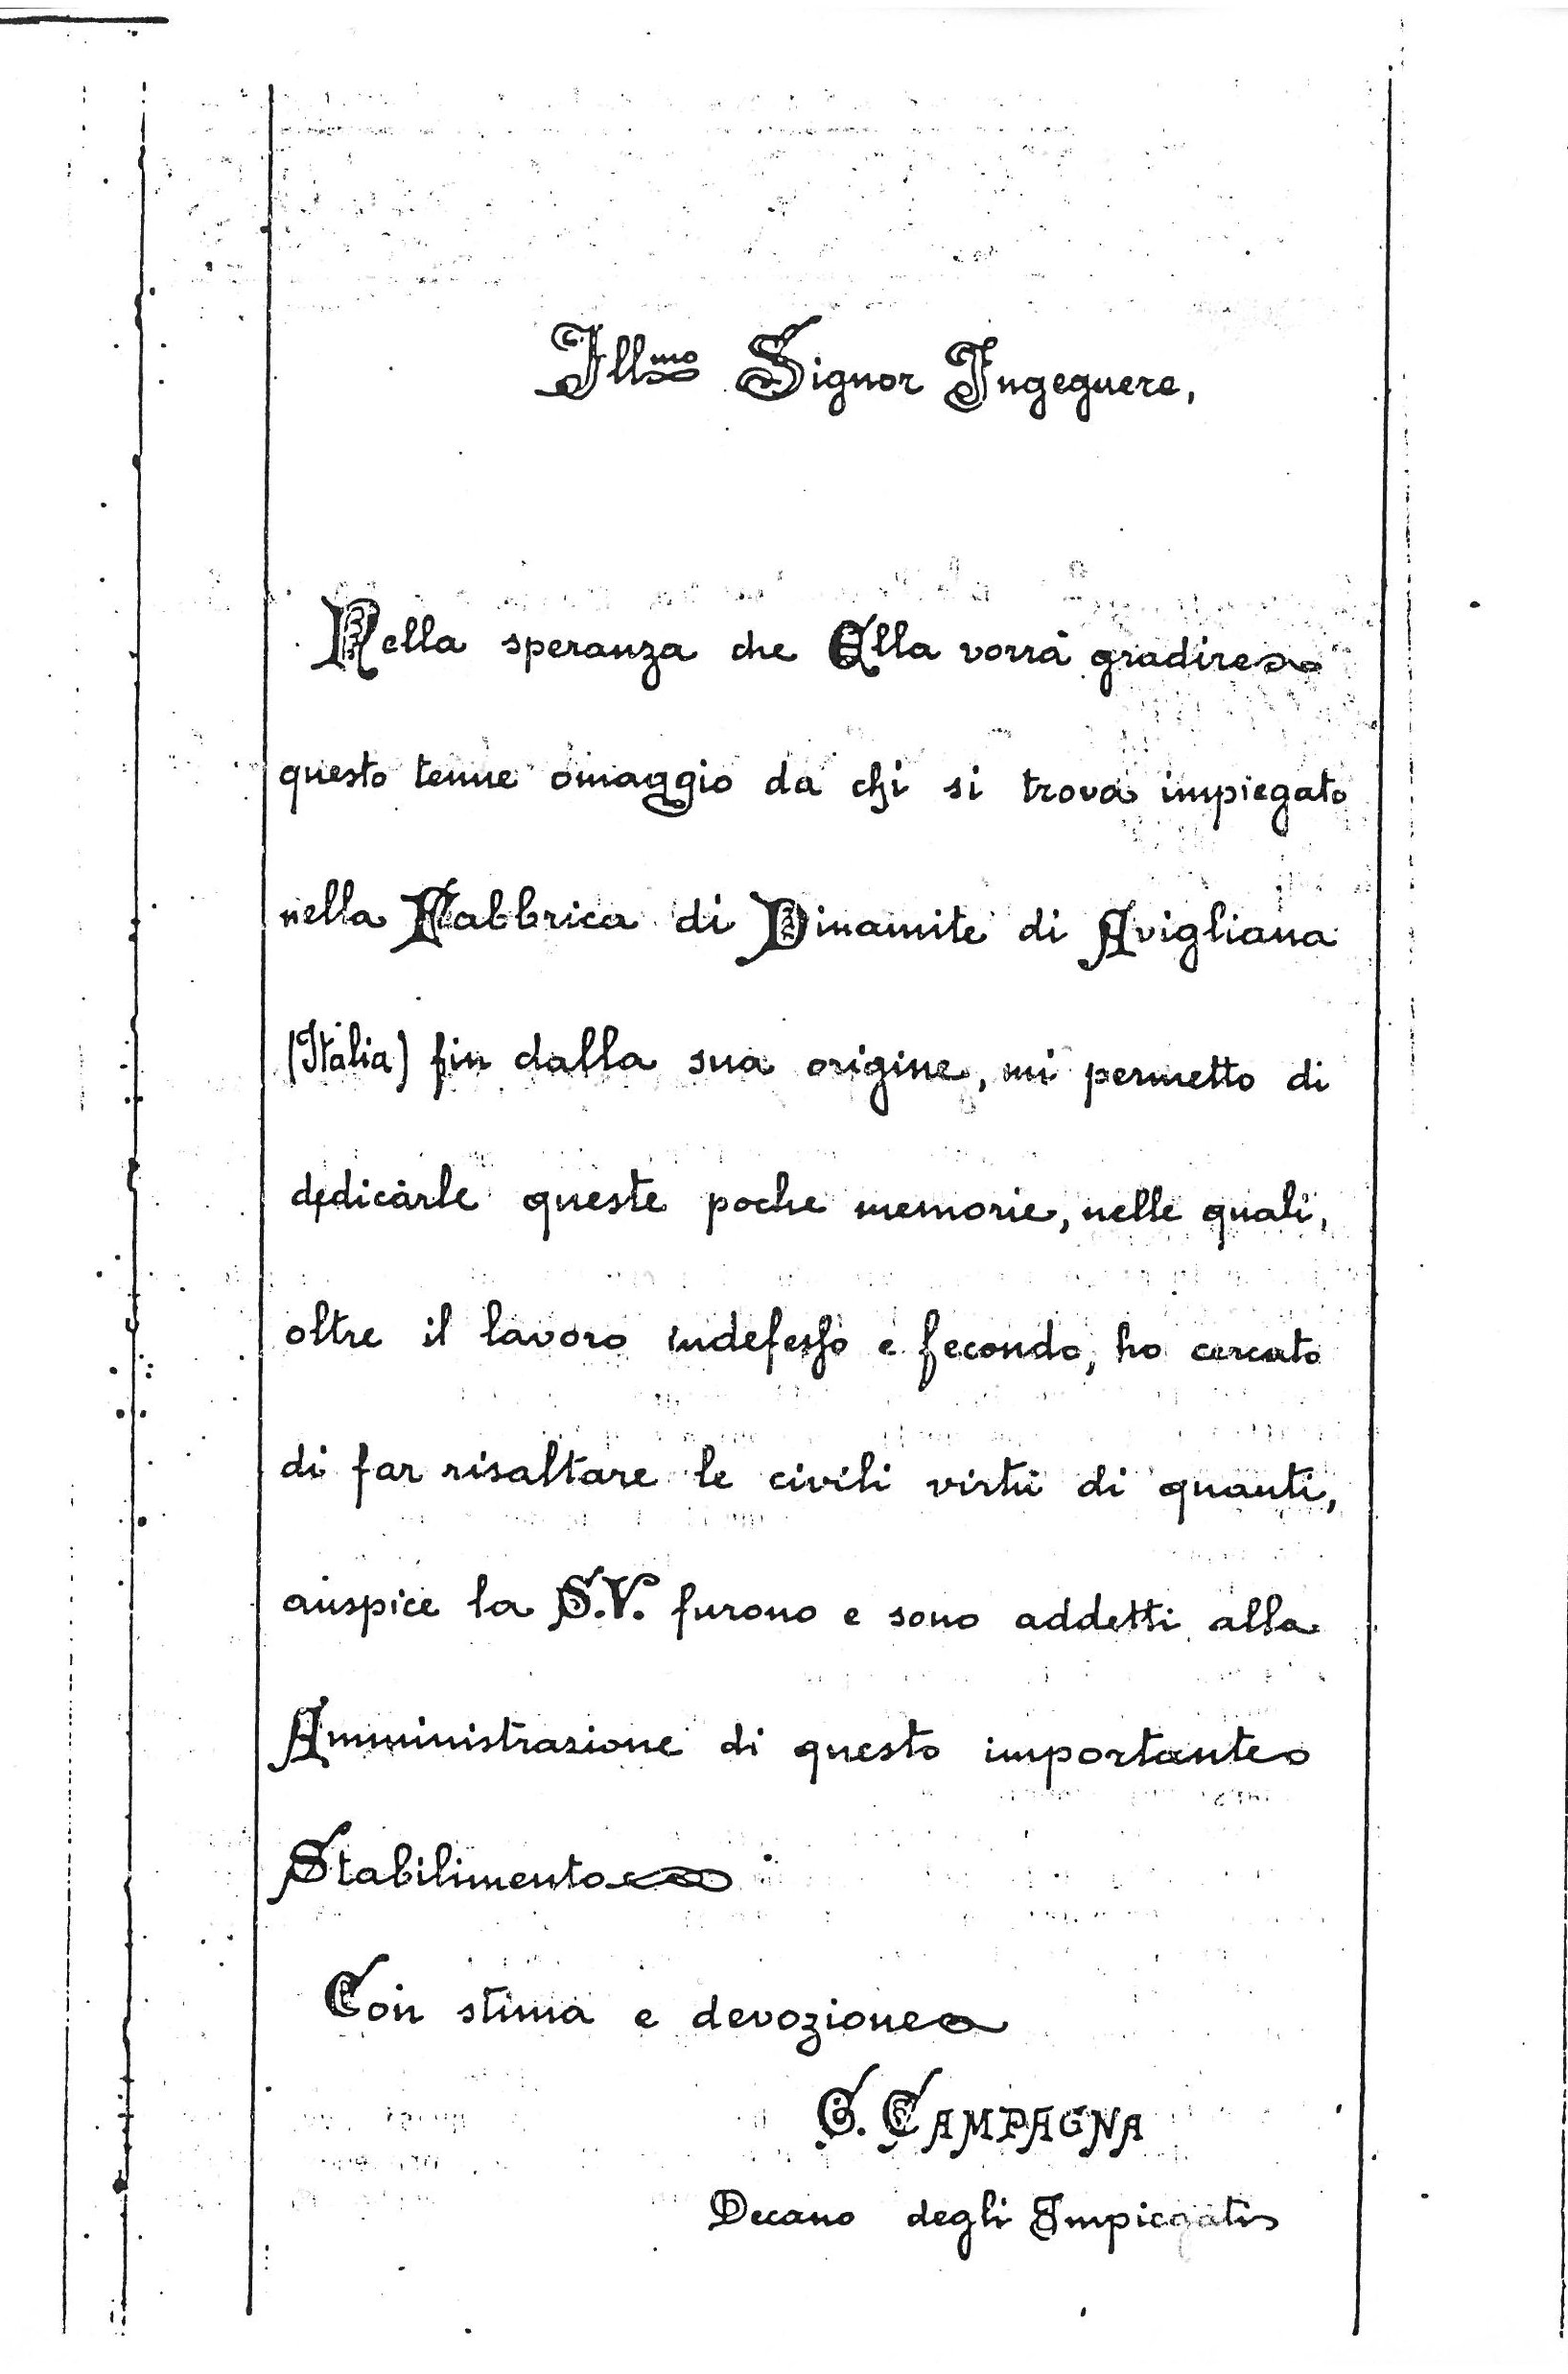 Ill.mo Signor Ingegnere,
Nella speranza che Ella vorrà gradire
questo tenue omaggio da chi si trova impiegato
nella Fabbrica di Dinamite di Avigliana
(Italia) fin dalla sua origine, mi permetto di
dedicarle queste poche memorie, nelle quali,
oltre il lavoro indefesso e fecondo, ho cercato
di far risaltare le civili virtù di quanti,
auspice la S.V. furono e sono addetti alla
Amministrazione di questo importante
Stabilimento
Con stima e devozione
G. CAMPAGNA
Decano degli Impiegati